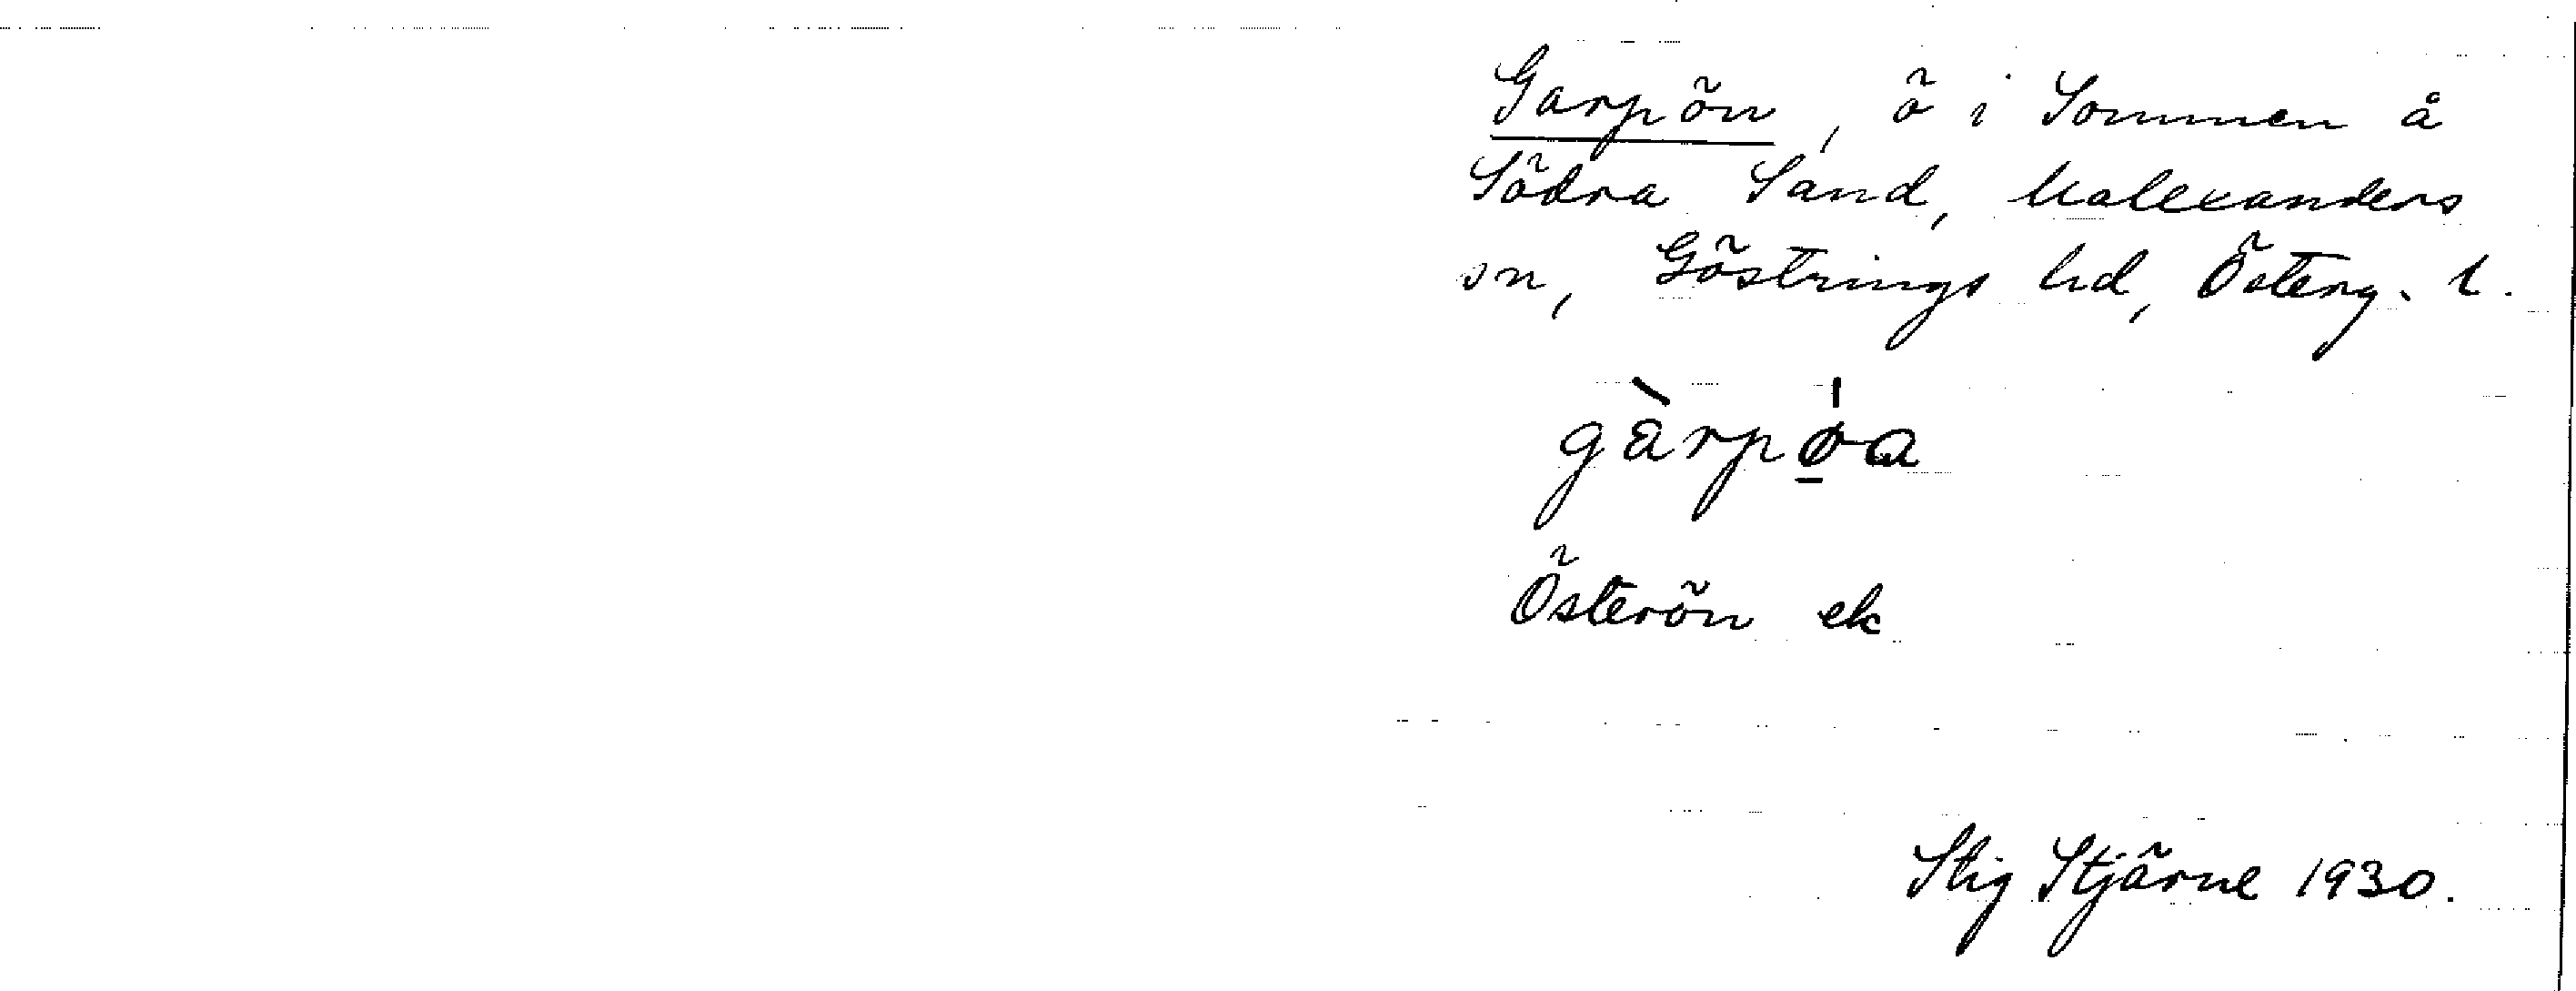 Garpön, ö i Sommen å
Södra Sand, Malexanders
sn, Göstrings hd, Österg. l.
gàrpǿ̱a
Österön ek
Stig Stjärne 1930.